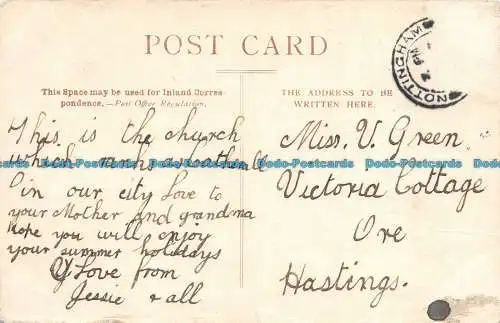 POST CARD
NOTTINGHAM
This Space may be used for Inland Corres-
pondence.—Post Office Regulation.
THE ADDRESS TO BE
WRITTEN HERE.
This is the church
which
in our city Love to
your Mother and grandma
hope you will enjoy
your summer holidays
Love from
Jessie & all
Miss. V. Green.
Victoria Cottage
Ore
Hastings.
Dodo-Postcards Dodo-Postcards Dodo-Postcards Dodo-Postcards